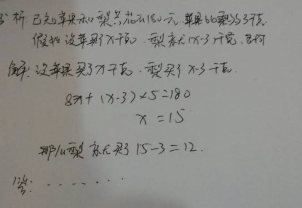 分析 已知苹果和梨共花了180元,苹果比梨多3千克
假设苹果买了x千克,梨就(x-3)千克
解:设苹果买了x千克,梨买了x-3千克
8x+(x-3)×5=180
x=15
那么梨就买了15-3=12.
答:.......